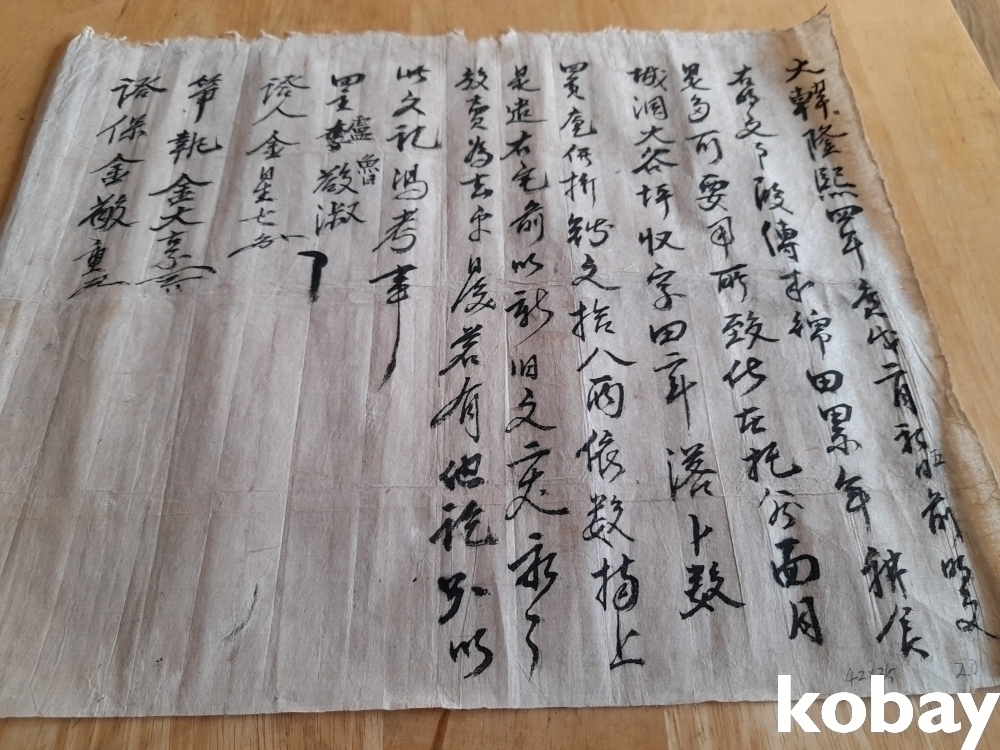 大韓隆熙四年庚戌二月 前明文
右明文事段傳來綿田累年耕食
是多可要用所致伏在托谷面月
城洞大谷坪収字田二斗落卜數
四負庫價折錢文拾八兩依數捧上
是遣右宅前以新旧文二丈永永
放賣爲去乎日後若有他談則以
此文記憑考事
田主 魯敬淑
證人金星七
筆執金大亨
證保金敬重
42×35
kobay